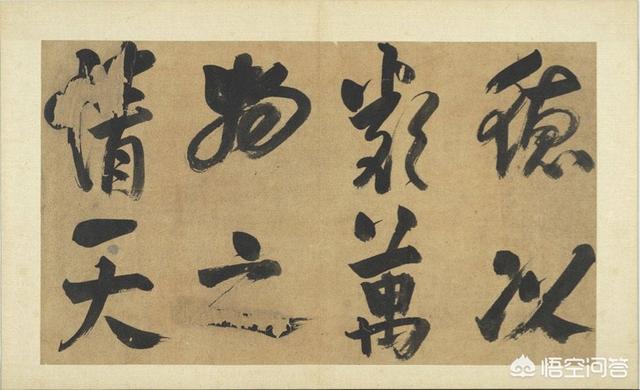 德以
類萬
物之
情天
悟空问答